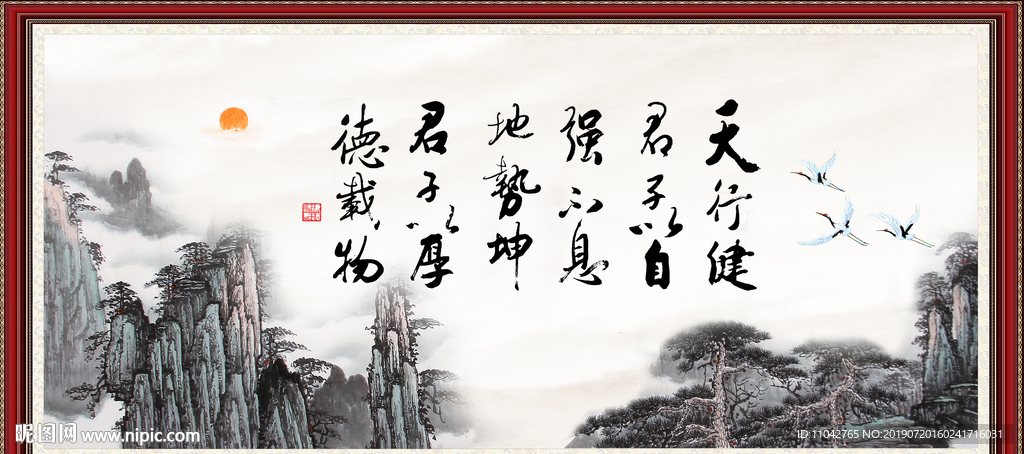 天行健
君子以自
强不息
地勢坤
君子以厚
德載物
昵图网 www.nipic.com
ID:11042765 NO:20190720160241716031